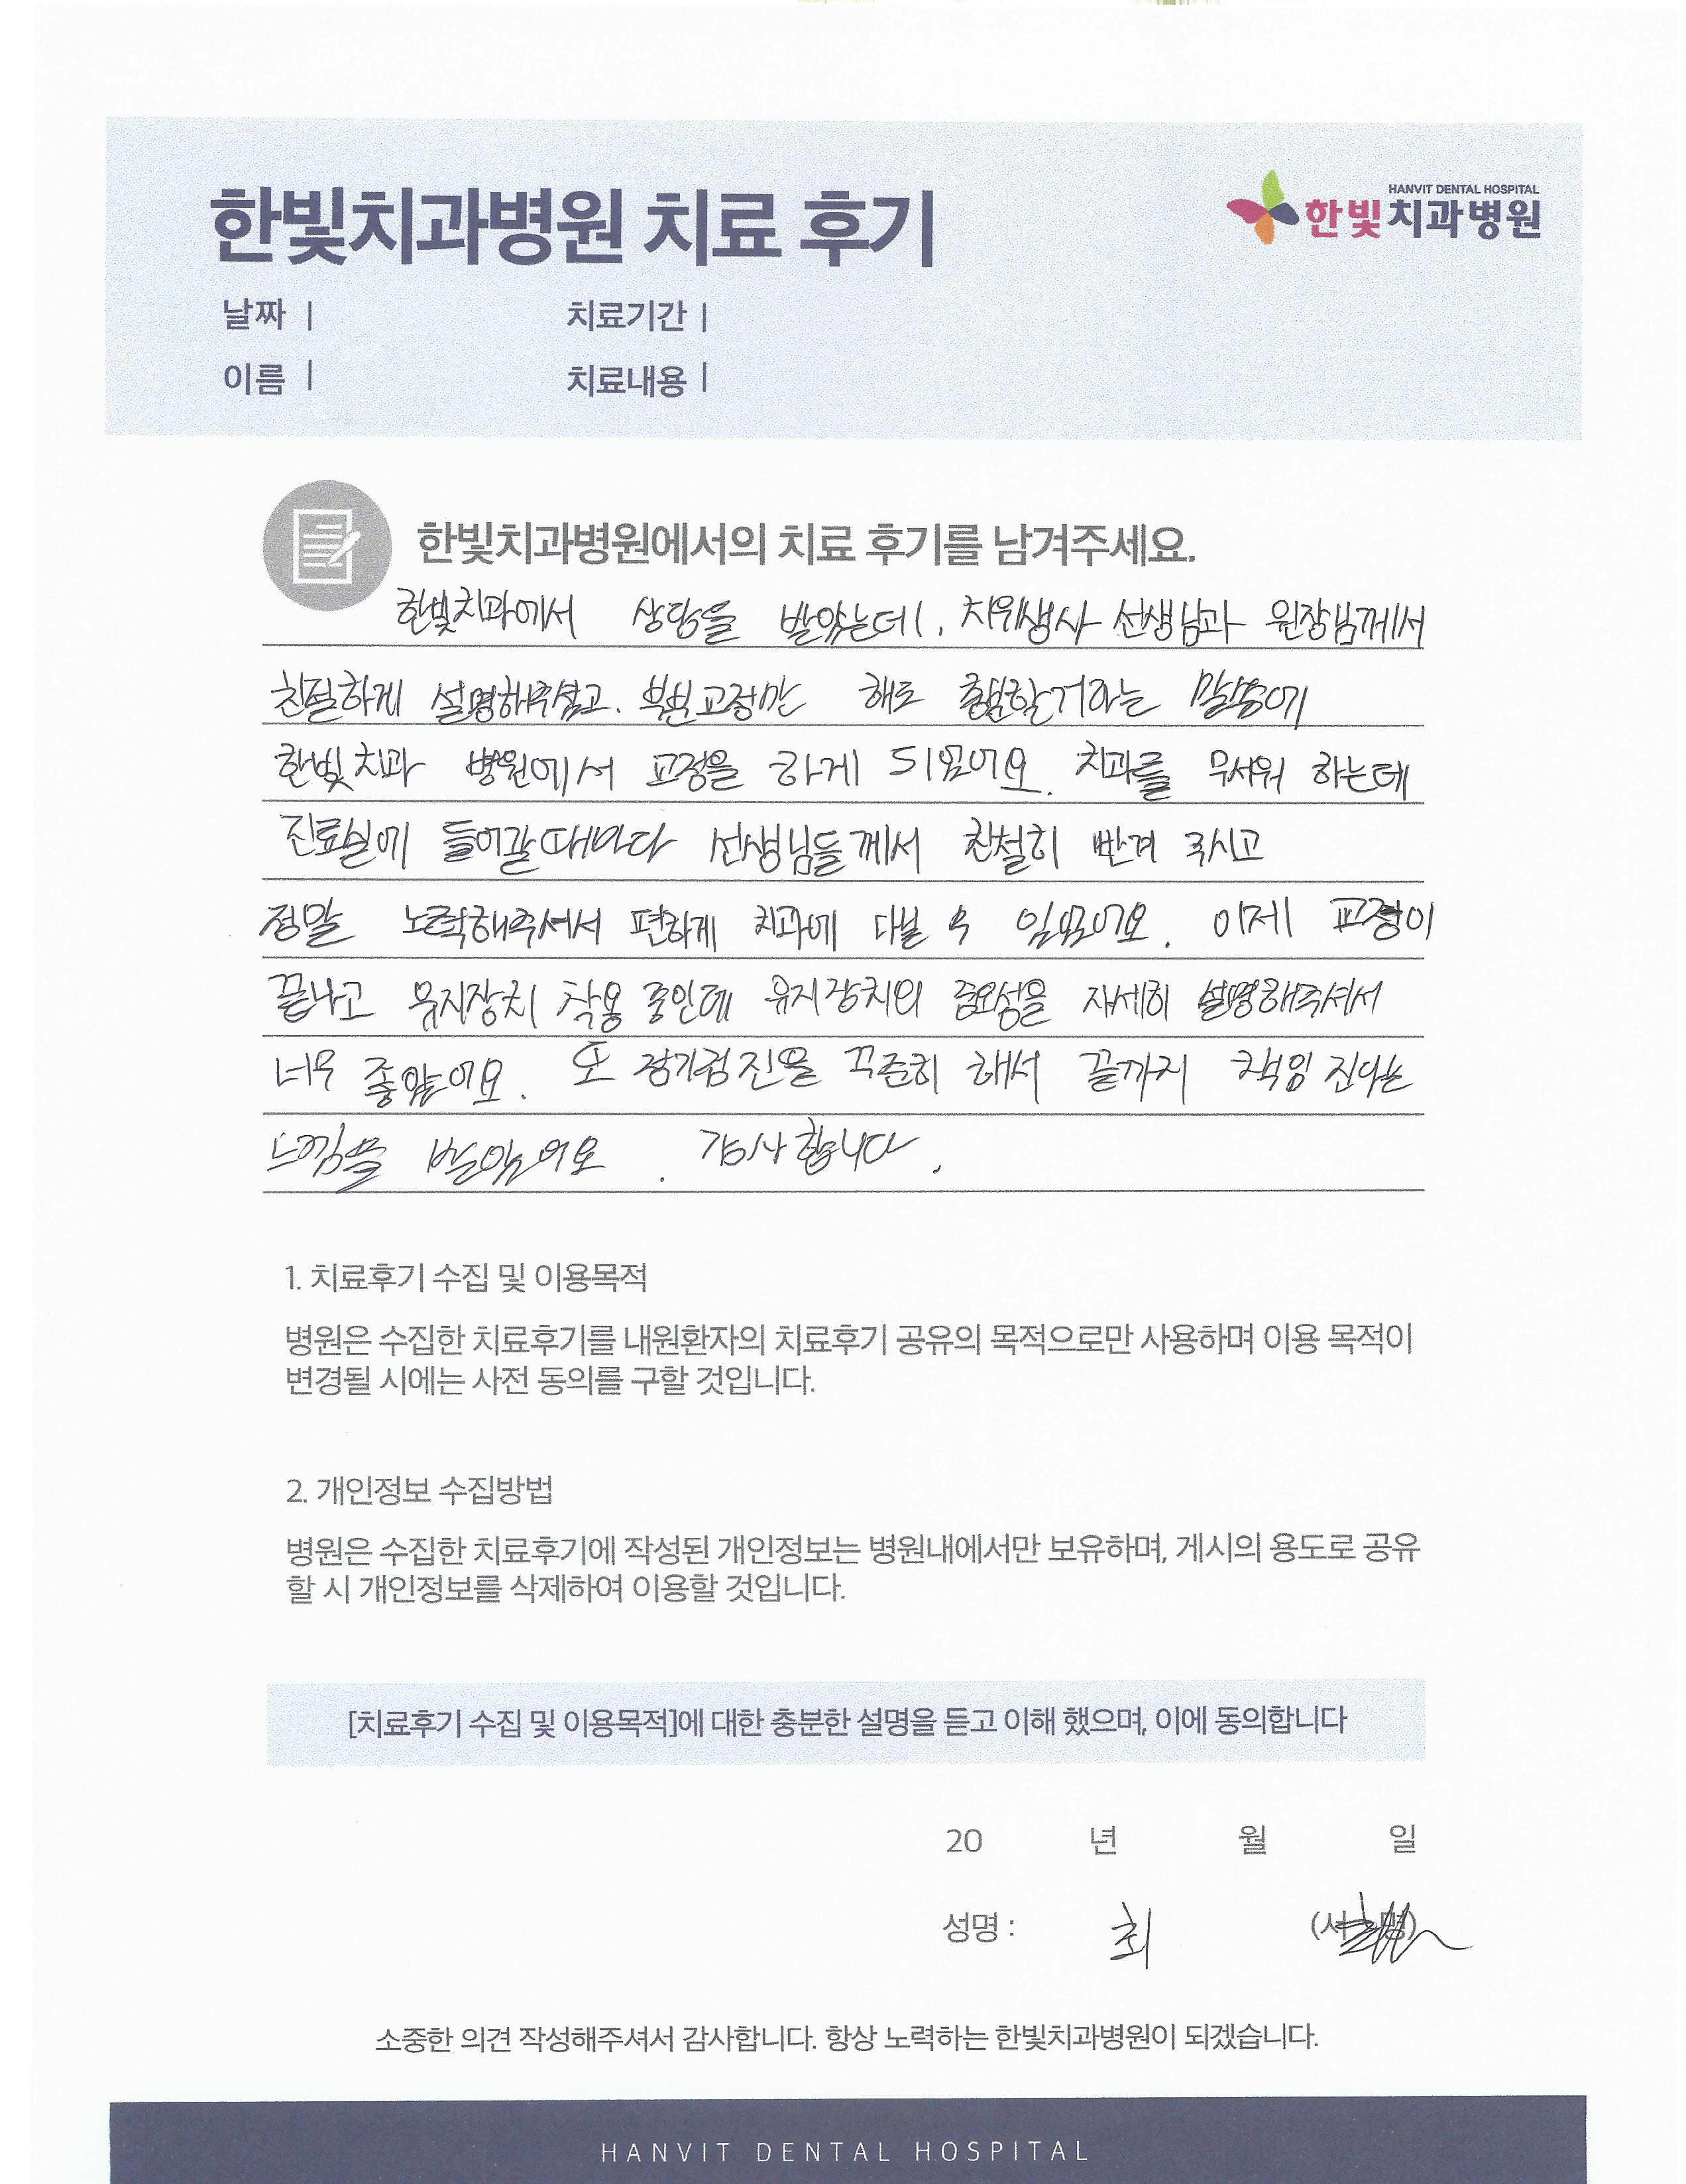 한빛치과병원 치료 후기
HANVIT DENTAL HOSPITAL
한빛치과병원
날짜 |
치료기간 |
이름 |
치료내용 |
한빛치과병원에서의 치료 후기를 남겨주세요.
한빛치과에서 상담을 받았는데, 치위생사 선생님과 원장님께서
친절하게 설명해주셨고. 부분교정만 해도 충분할거라는 말씀에
한빛치과 병원에서 교정을 하게 되었어요. 치과를 무서워 하는데
진료실에 들어갈때마다 선생님들께서 친절히 반겨 주시고
정말 노력해주셔서 편하게 치과에 다닐 수 있었어요. 이제 교정이
끝나고 유지장치 착용 중인데 유지장치의 중요성을 자세히 설명해주셔서
너무 좋았어요. 또 정기검진을 꾸준히 해서 끝까지 책임 진다는
느낌을 받았어요. 감사합니다.
1. 치료후기 수집 및 이용목적
병원은 수집한 치료후기를 내원환자의 치료후기 공유의 목적으로만 사용하며 이용 목적이
변경될 시에는 사전 동의를 구할 것입니다.
2. 개인정보 수집방법
병원은 수집한 치료후기에 작성된 개인정보는 병원내에서만 보유하며, 게시의 용도로 공유
할 시 개인정보를 삭제하여 이용할 것입니다.
[치료후기 수집 및 이용목적]에 대한 충분한 설명을 듣고 이해 했으며, 이에 동의합니다
20 년 월 일
성명 : 최 (서명)
소중한 의견 작성해주셔서 감사합니다. 항상 노력하는 한빛치과병원이 되겠습니다.
HANVIT DENTAL HOSPITAL